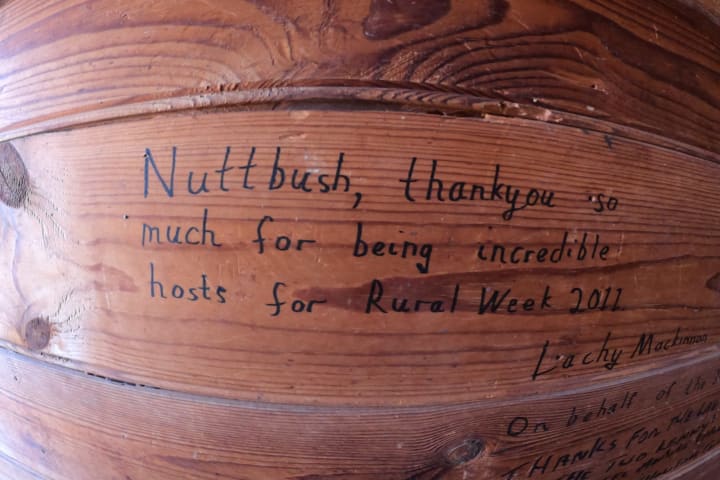 Nuttbush, thankyou so
much for being incredible
hosts for Rural Week 2011
Lachy Mackinnon
On behalf of the
THANKS FOR
THE TWO